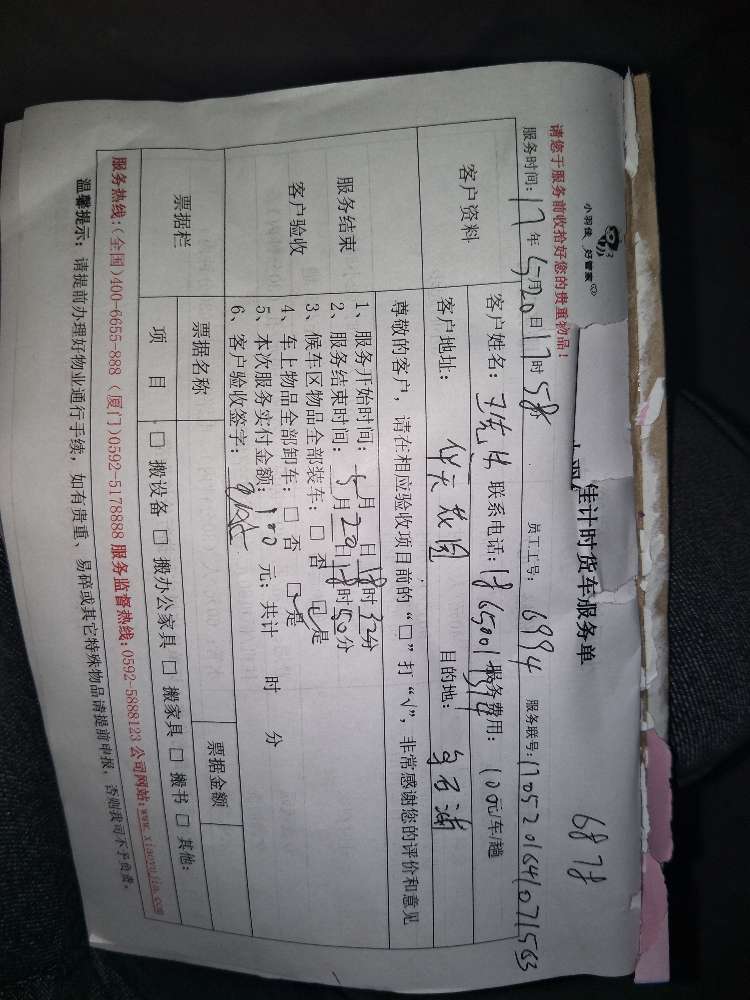 6878
小羽佳 好管家
佳计时货车服务单
请您于服务前收拾好您的贵重物品!
服务时间: 17年5月20日17时58 员工工号: 6994 服务联号:
客户资料
客户姓名: 王先生 联系电话: 服务费用: 100元/车/趟
客户地址: 目的地: 乌石浦
尊敬的客户,请在相应验收项目前的“□”打“√”,非常感谢您的评价和意见
服务结束
客户验收
1、服务开始时间: 5月 日18时32分
2、服务结束时间: 5月20日18时50分
3、候车区物品全部装车: □ 否 ☑ 是
4、车上物品全部卸车: □ 否 ☑ 是
5、本次服务实付金额: 100 元; 共计 时 分
6、客户验收签字:
票据栏
票据名称 票据金额
项 目 □ 搬设备 □ 搬办公家具 □ 搬家具 □ 搬书 □ 其他:
服务热线:(全国)400-6655-888 (厦门)0592-5178888 服务监督热线:0592-5888123 公司网站:www.xiaoyujia.com
温馨提示: 请提前办理好物业通行手续, 如有贵重、易碎或其它特殊物品请提前申报, 否则我司不予负责。